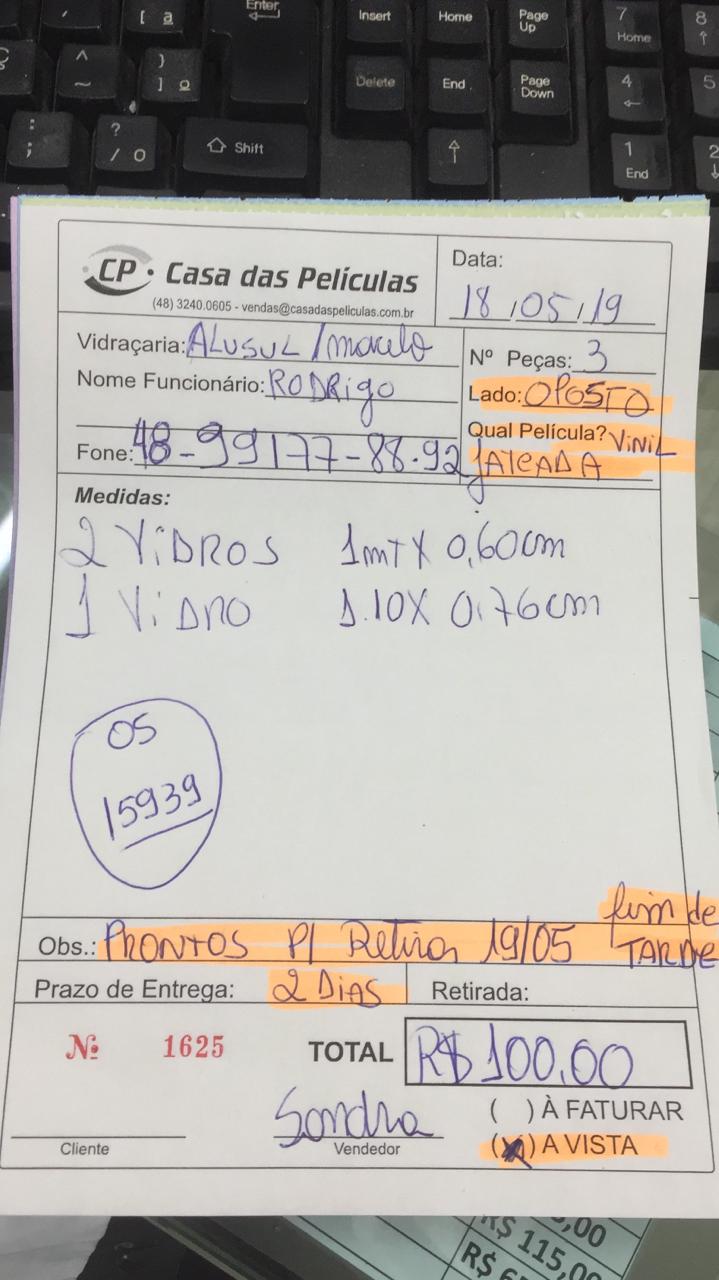 Enter
Insert
Home
Page Up
7 Home
8
[ ª
Delete
End
Page Down
4
5
^ ~
} ] º
: ;
? / O
Shift
1 End
2
CP • Casa das Películas
(48) 3240.0605 - vendas@casadaspeliculas.com.br
Data:
18/05/19
Vidraçaria: ALUSUL / marcelo
Nome Funcionário: RODRIGO
Fone: 48-99177-88.92
Nº Peças: 3
Lado: OPOSTO
Qual Película? VINIL
JATEADA
Medidas:
2 VIDROS 1mT X 0,60cm
1 VIDRO 1.10 X 0,76cm
OS
15939
Obs.: PRONTOS P/ Retirar 19/05 fim de
TARDE
Prazo de Entrega: 2 DIAS
Retirada:
Nº 1625
TOTAL R$ 100,00
Sandra
( ) À FATURAR
(X) A VISTA
Cliente
Vendedor
R$ 115,00
R$